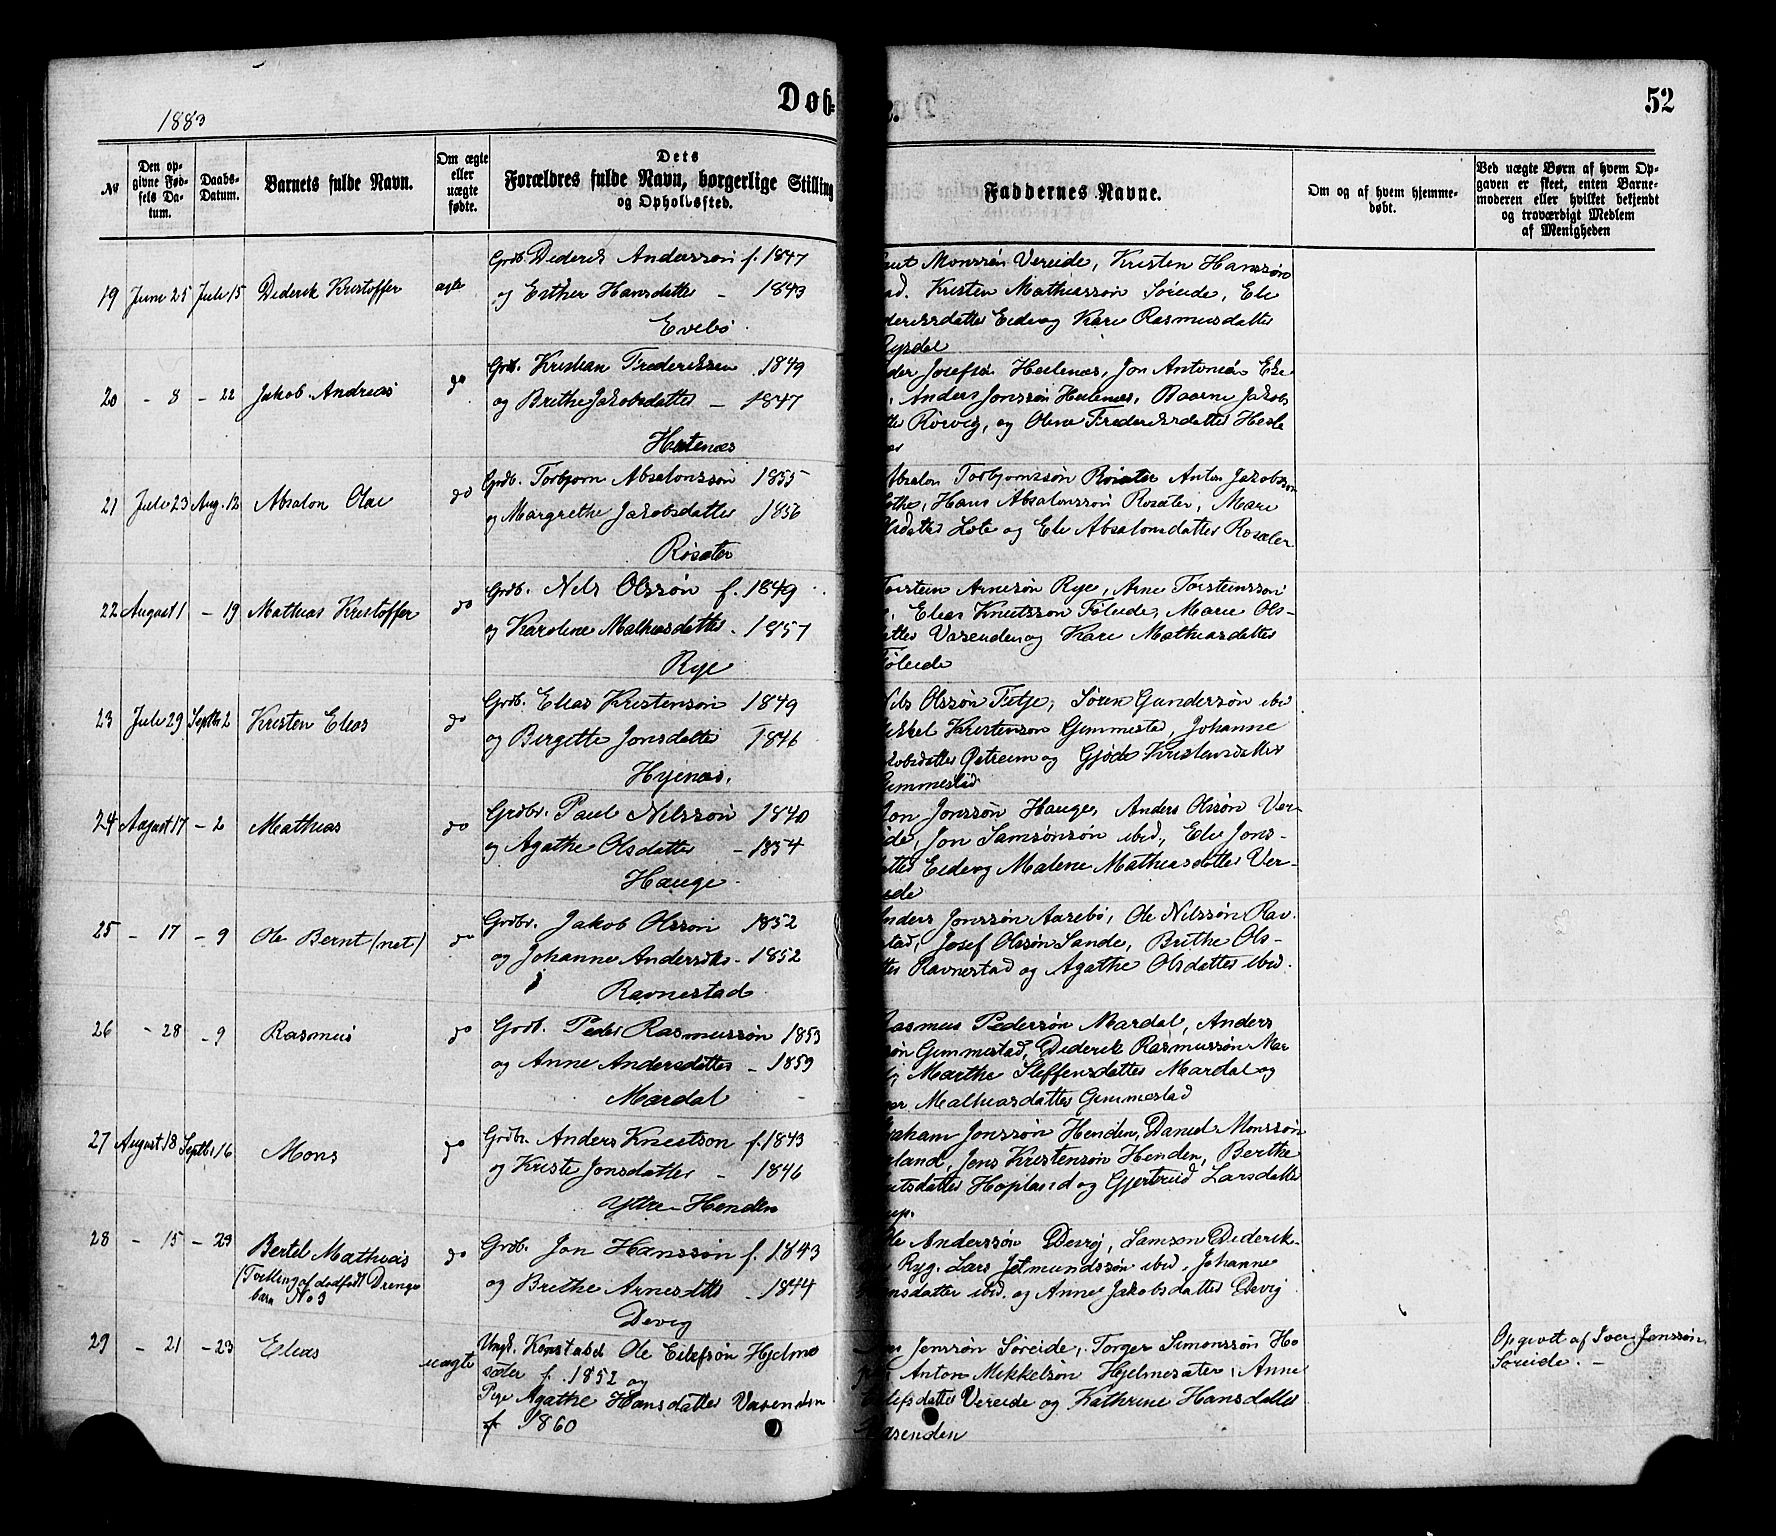 1883
Døb-
52
No
Den opgivne Fødsels Datum.
Daabs-Datum.
Barnets fulde Navn.
Om ægte eller uægte fødte.
Dets Forældres fulde Navn, borgerlige Stilling og Opholdssted.
Faddernes Navne.
Om og af hvem hjemmedøbt.
Ved uægte Børn af hvem Opgaven er skeet, enten Barnemoderen eller hvilket bekjendt og troværdigt Medlem af Menigheden
19 Juni 25 Juli 15 Diderik Kristoffer ægte
Grdb. Diderik Anderssøn f. 1847
og Esther Hansdatter - 1843
Evebø
Monssøn Vereide, Kristen Hanssøn
Kristen Mathiassøn Søreide, Eli
Eide og Kari Rasmusdatter
Rysdal
20 - 8 - 22 Jakob Andreas do
Grdb. Kristian Frederiksen 1849
og Brithe Jakobsdatter - 1847
Hestenæs
Josefsøn Hestenæs, Jon Antonsøn Eke
Anders Jonssøn Hestenæs, Jakobs
Rørvig, og Oline Frederiksdatter Heste
21 Juli 23 Aug. 12 Absalon Olai do
Grdb. Torbjørn Absalonssøn 1855
og Margrethe Jakobsdatter 1856
Røsæter
Absalon Torbjørnssøn Røsæter Anton Jakobssøn
Lothe, Hans Absalonssøn Røsæter, Mari
Lote og Eli Absalonsdatter Røsæter
22 August 1 - 19 Mathias Kristoffer do
Grdb. Nils Olssøn f. 1849
og Karoline Mathiasdatter - 1857
Rye
Torstein Arnesøn Rye, Arne Torsteinssøn
Elias Knutssøn Føleide, Marie Ols-
datter Vasenden og Kari Mathiasdatter
Føleide
23 Juli 29 Septbr 2 Kristen Elias do
Grdb. Elias Kristensøn 1849
og Birgitte Jonsdatter 1846
Hyenæs.
Nils Olssøn Fitje, Søren Gunderssøn ibid
Kristensøn Gimmestad, Johanne
og Gjøde Kristensdatter
Gimmestad
24 August 17 - 2 Mathias do
Grdbr. Paul Nilssøn 1840
og Agathe Olsdatter - 1854
Hauge.
Jon Jonssøn Hauge, Anders Olssøn Ver-
eide, Jon Samsonsøn ibid., Eli Jons-
datter Eide og Malene Mathiasdatter Ver-
eide
25 - 17 - 9 Ole Bernt (net) do
Grdbr. Jakob Olssøn 1852
og Johanne Andersdtr - 1852
Ravnestad
Anders Jonssøn Aasebø, Ole Nilssøn Rav-
nestad, Josef Olssøn Sande, Brithe Ols-
datter Ravnestad og Agathe Olsdatter ibid.
26 - 28 - 9 Rasmus do
Grdb. Peder Rasmussøn 1853
og Anne Andersdatter - 1859
Mardal
Rasmus Pedersøn Mardal, Anders
Gimmestad, Diderik Rasmussøn Mar
Marthe Steffensdatter Mardal og
Mathiasdatter Gimmestad
27 August 18 Septbr 16 Mons do
Grdbr. Anders Knutson f. 1843
og Kristi Jonsdatter - 1846
Yttre-Henden
Jonssøn Henden, Daniel Monssøn
Jens Kristensøn Henden, Berthe
Hopland og Gjertrud Larsdatter
28 - 15 - 29 Bertel Mathias do
(Tvilling af dødfødt Drenge
barn No 3
Grdb. Jon Hanssøn f. 1843
og Brithe Arnesdtr - 1844
Devig
Ole Anderssøn Devig, Samson Diderik-
Ryg. Lars Jetmundssøn ibid, Johanne
ibid. og Anne Jakobsdatter Devig
29 - 21 - 23 Elias uægte
Ungk. Ole Eilefsøn Hjelme
sæter f. 1852 og
Pige Agathe Hansdatter Vasenden
f 1860
Jenssøn Søreide, Torger Simonssøn Ho
Anton Mikkelsøn Hjelmesæter, Anne
Vereide og Kathrine Hansdatter
Vasenden
Opgivet af Iver Jenssøn
Søreide. -